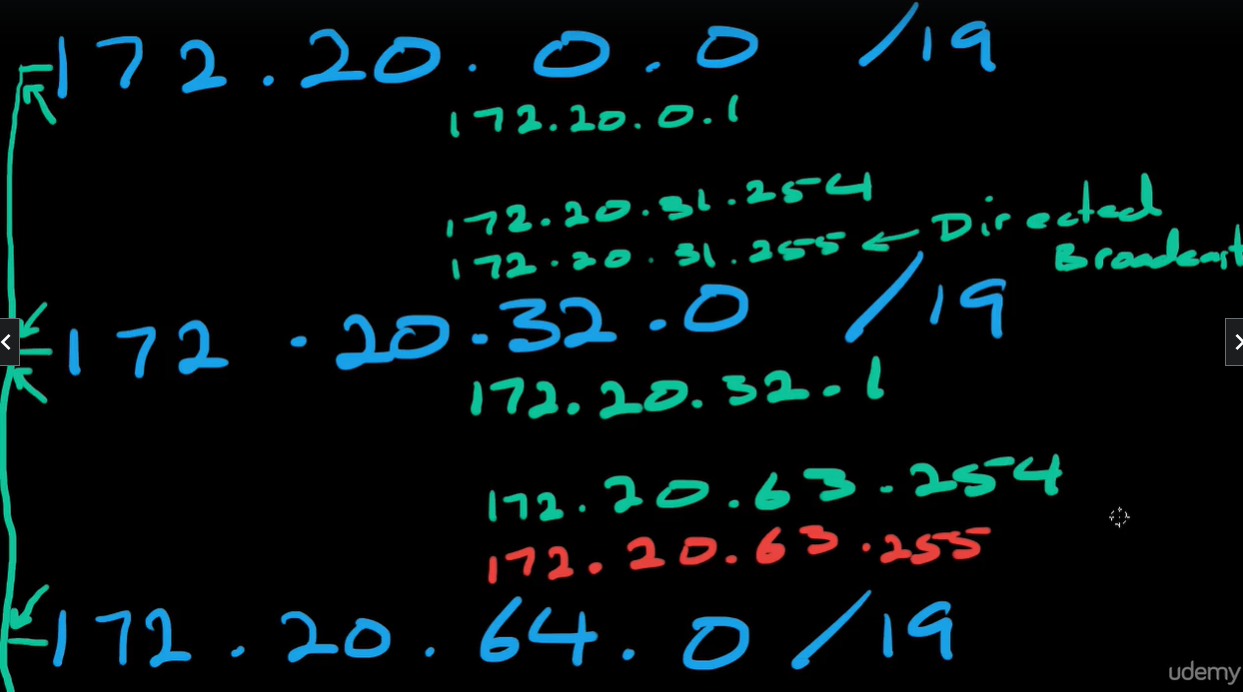 172.20.0.0 /19
172.20.0.1
172.20.31.254
172.20.31.255 ← Directed
Broadcast
172.20.32.0 /19
172.20.32.1
172.20.63.254
172.20.63.255
172.20.64.0 /19
udemy